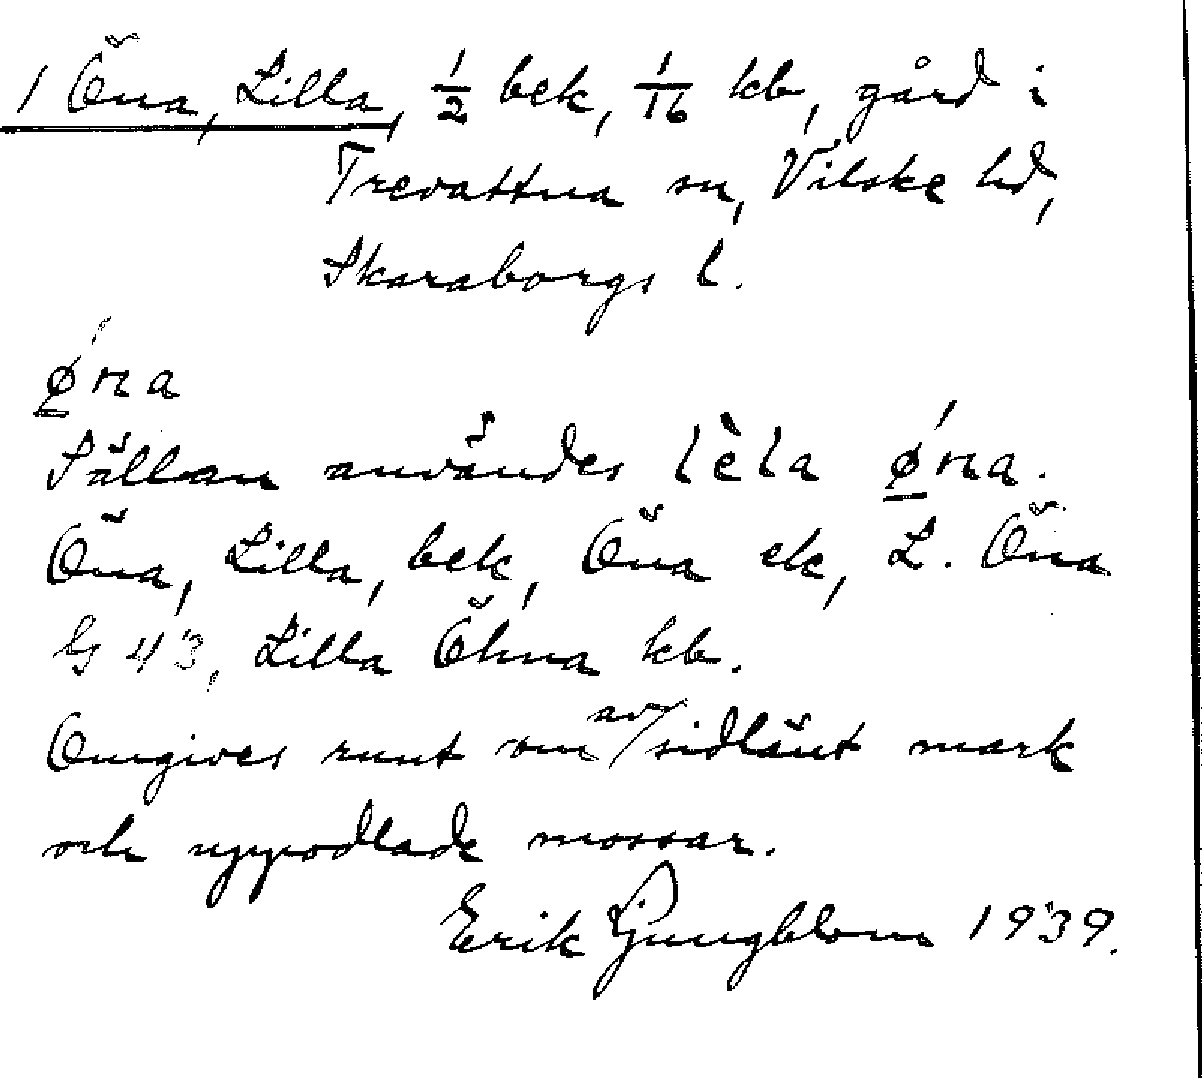 1 Öna, Lilla, 1/2 bek, 1/16 kb, gård i
Trevattna sn, Vilske hd,
Skaraborgs l.
ǿna
Sällan användes lèla ǿna.
Öna, Lilla, bek, Öna ek, L. Öna
G 43, Lilla Öhna kb.
Omgives runt om av sidlänt mark
och uppodlade mossar.
Erik Ljungblom 1939.